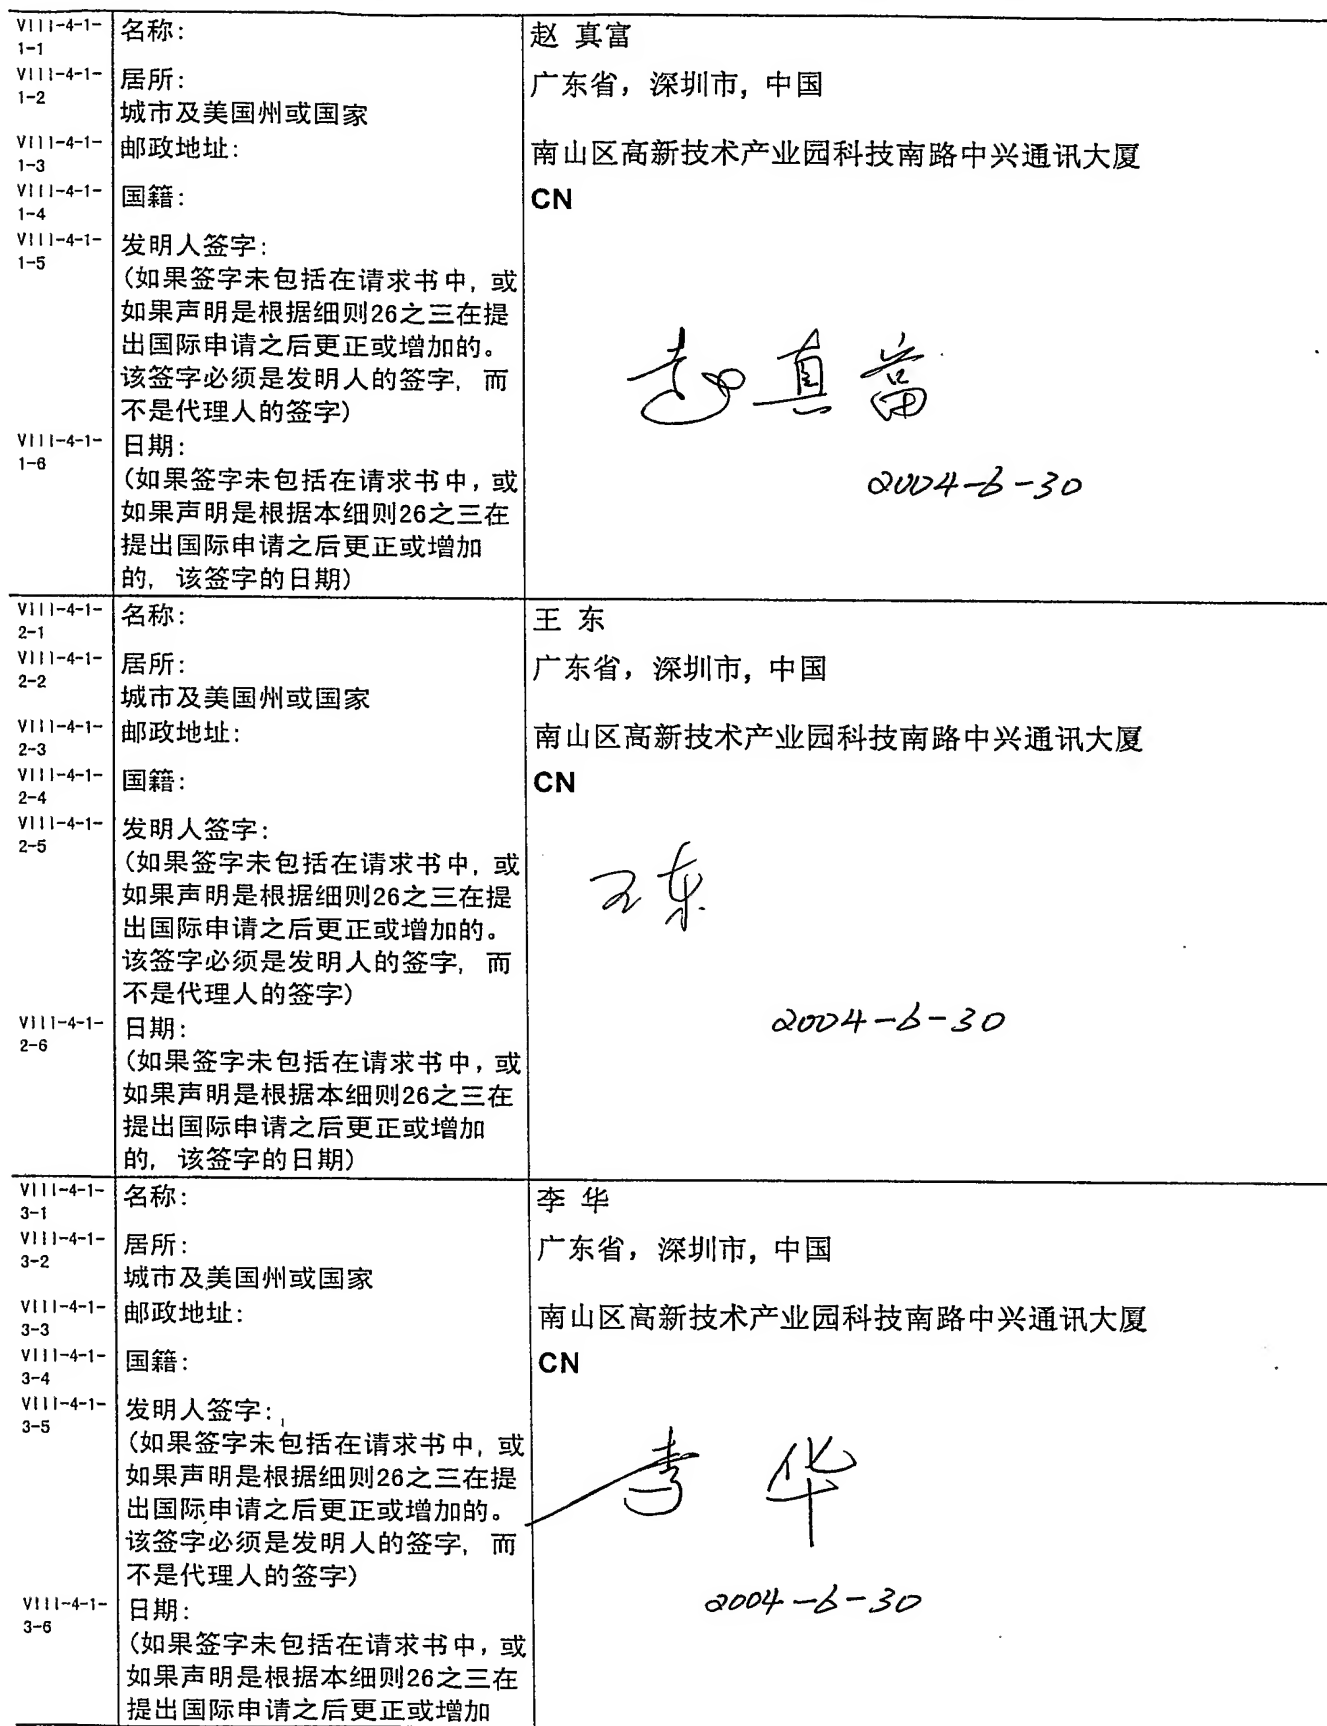 VIII-4-1-1-1 名称： 赵 真富
VIII-4-1-1-2 居所： 广东省，深圳市，中国
城市及美国州或国家
VIII-4-1-1-3 邮政地址： 南山区高新技术产业园科技南路中兴通讯大厦
VIII-4-1-1-4 国籍： CN
VIII-4-1-1-5 发明人签字：
（如果签字未包括在请求书中，或
如果声明是根据细则26之三在提
出国际申请之后更正或增加的。
该签字必须是发明人的签字，而
不是代理人的签字）
赵真富
VIII-4-1-1-6 日期：
（如果签字未包括在请求书中，或
如果声明是根据本细则26之三在
提出国际申请之后更正或增加
的，该签字的日期）
2004-6-30
VIII-4-1-2-1 名称： 王 东
VIII-4-1-2-2 居所： 广东省，深圳市，中国
城市及美国州或国家
VIII-4-1-2-3 邮政地址： 南山区高新技术产业园科技南路中兴通讯大厦
VIII-4-1-2-4 国籍： CN
VIII-4-1-2-5 发明人签字：
（如果签字未包括在请求书中，或
如果声明是根据细则26之三在提
出国际申请之后更正或增加的。
该签字必须是发明人的签字，而
不是代理人的签字）
王东
VIII-4-1-2-6 日期：
（如果签字未包括在请求书中，或
如果声明是根据本细则26之三在
提出国际申请之后更正或增加
的，该签字的日期）
2004-6-30
VIII-4-1-3-1 名称： 李 华
VIII-4-1-3-2 居所： 广东省，深圳市，中国
城市及美国州或国家
VIII-4-1-3-3 邮政地址： 南山区高新技术产业园科技南路中兴通讯大厦
VIII-4-1-3-4 国籍： CN
VIII-4-1-3-5 发明人签字：
（如果签字未包括在请求书中，或
如果声明是根据细则26之三在提
出国际申请之后更正或增加的。
该签字必须是发明人的签字，而
不是代理人的签字）
李华
VIII-4-1-3-6 日期：
（如果签字未包括在请求书中，或
如果声明是根据本细则26之三在
提出国际申请之后更正或增加
2004-6-30